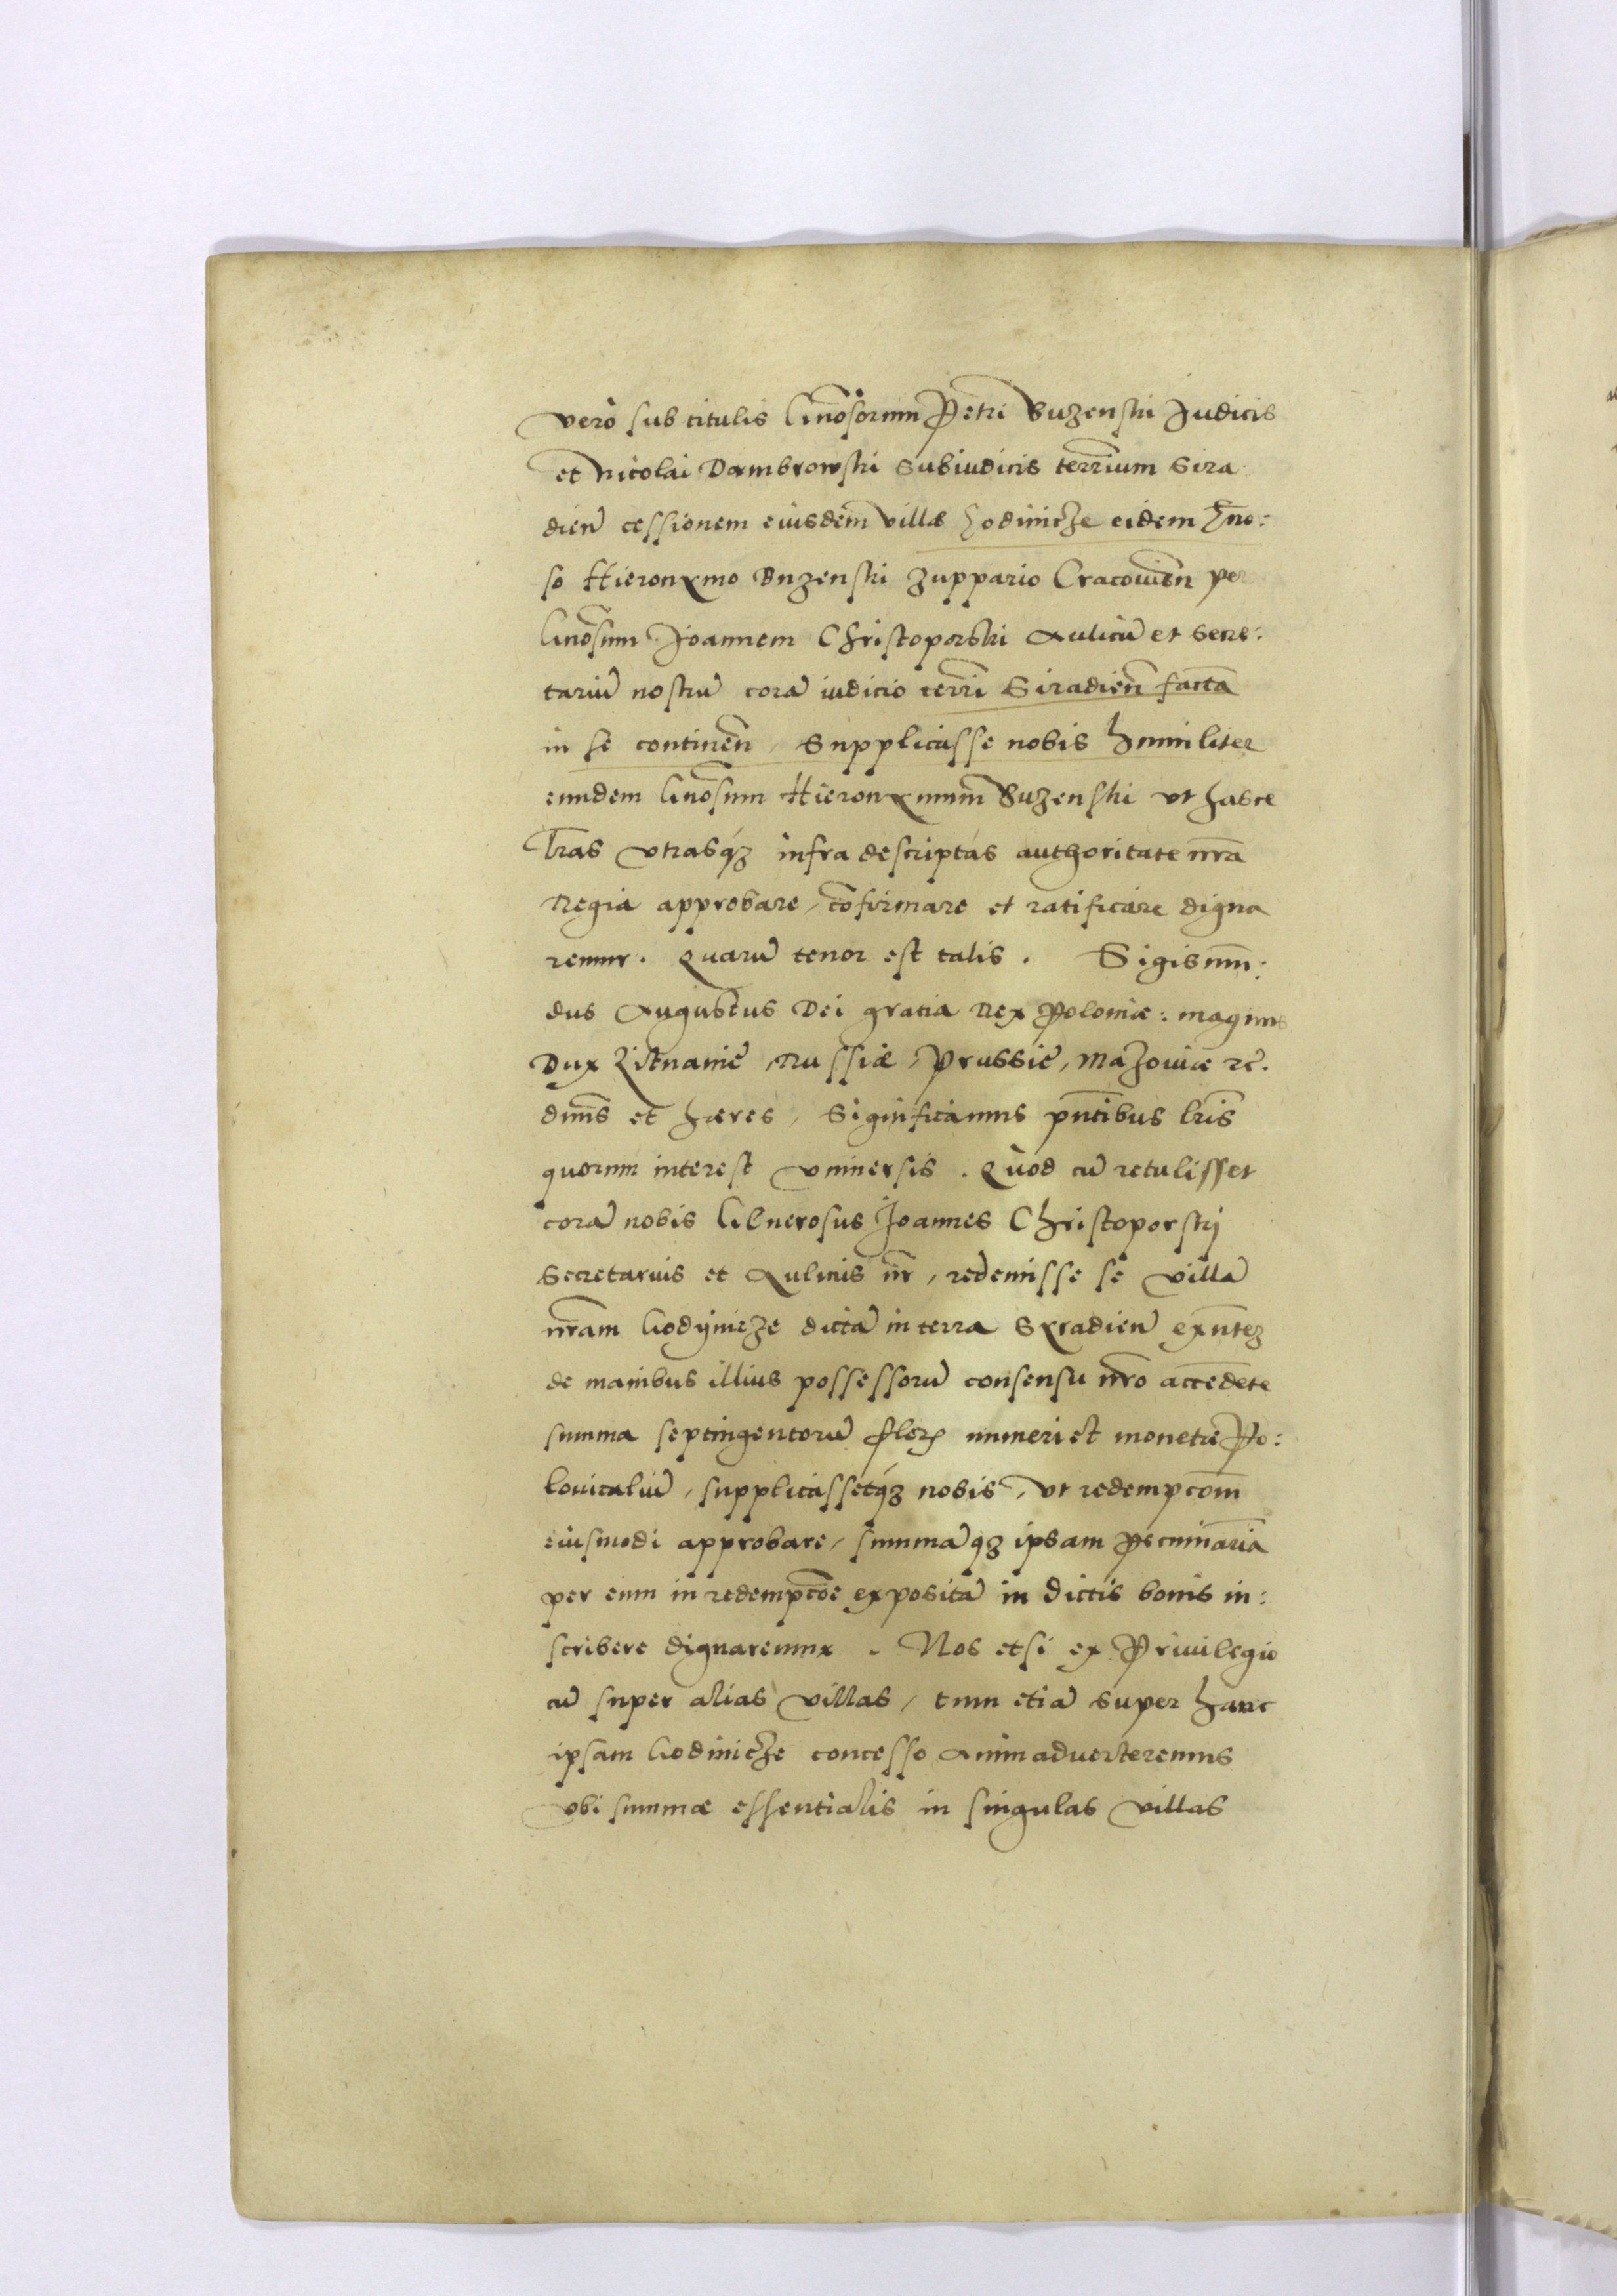 verò sub titulis Gn̄osorum Petri Buzenski Judicis
et Nicolai Dambrowski Subiudicis terr̄ium Sira
dien̄ cessionem eiusdem villæ Godinicze eidem Gn̄o:
so Hieronymo Buzenski Zuppario Cracovien̄ per
Gn̄osum Joannem Christoporski Aulicū et Secre:
tariū nostrū corā iudicio terr̄i Siradien̄ factā
in se continen̄, Supplicasse nobis humiliter
eundem Gn̄osum Hieronymum Buzenski ut hasce
l̄ras utrasq́ꝫ infra descriptas authoritate nr̄a
Regia approbare, cōfirmare et ratificare digna
remur. Quarū tenor est talis. Sigismun̄:
dus Augustus Dei gratia Rex Poloniæ: magnus
Dux Lituaniæ, Russiæ, Prussiæ, Mazoviæ ꝛc̄.
dn̄us et hæres, Significamus pn̄tibus l̄ris
quorum interest universis. Quòd cū retulisset
corā nobis Generosus Joannes Christoporskj
Secretarius et Aulicus nr̄, redemisse se villā
nr̄am Godÿnicze dictā in terra Syradien̄ exn̄teꝫ
de manibus illius possessorū consensu nr̄o accedēte
summa septingentorū flor̄ numeri et monetæ Po:
lonicaliū, supplicassetq́ꝫ nobis, ut redempcōm
eiusmodi approbare, summāqꝫ ipsam pecuniariā
per eum in redempcōe expositā in dictis bonis in:
scribere dignaremur. Nos etsi ex Privilegio
cū super alias villas, tum etiā super hanc
ipsam Godinicze concesso animadverteremus
ubi summæ essentialis in singulas villas